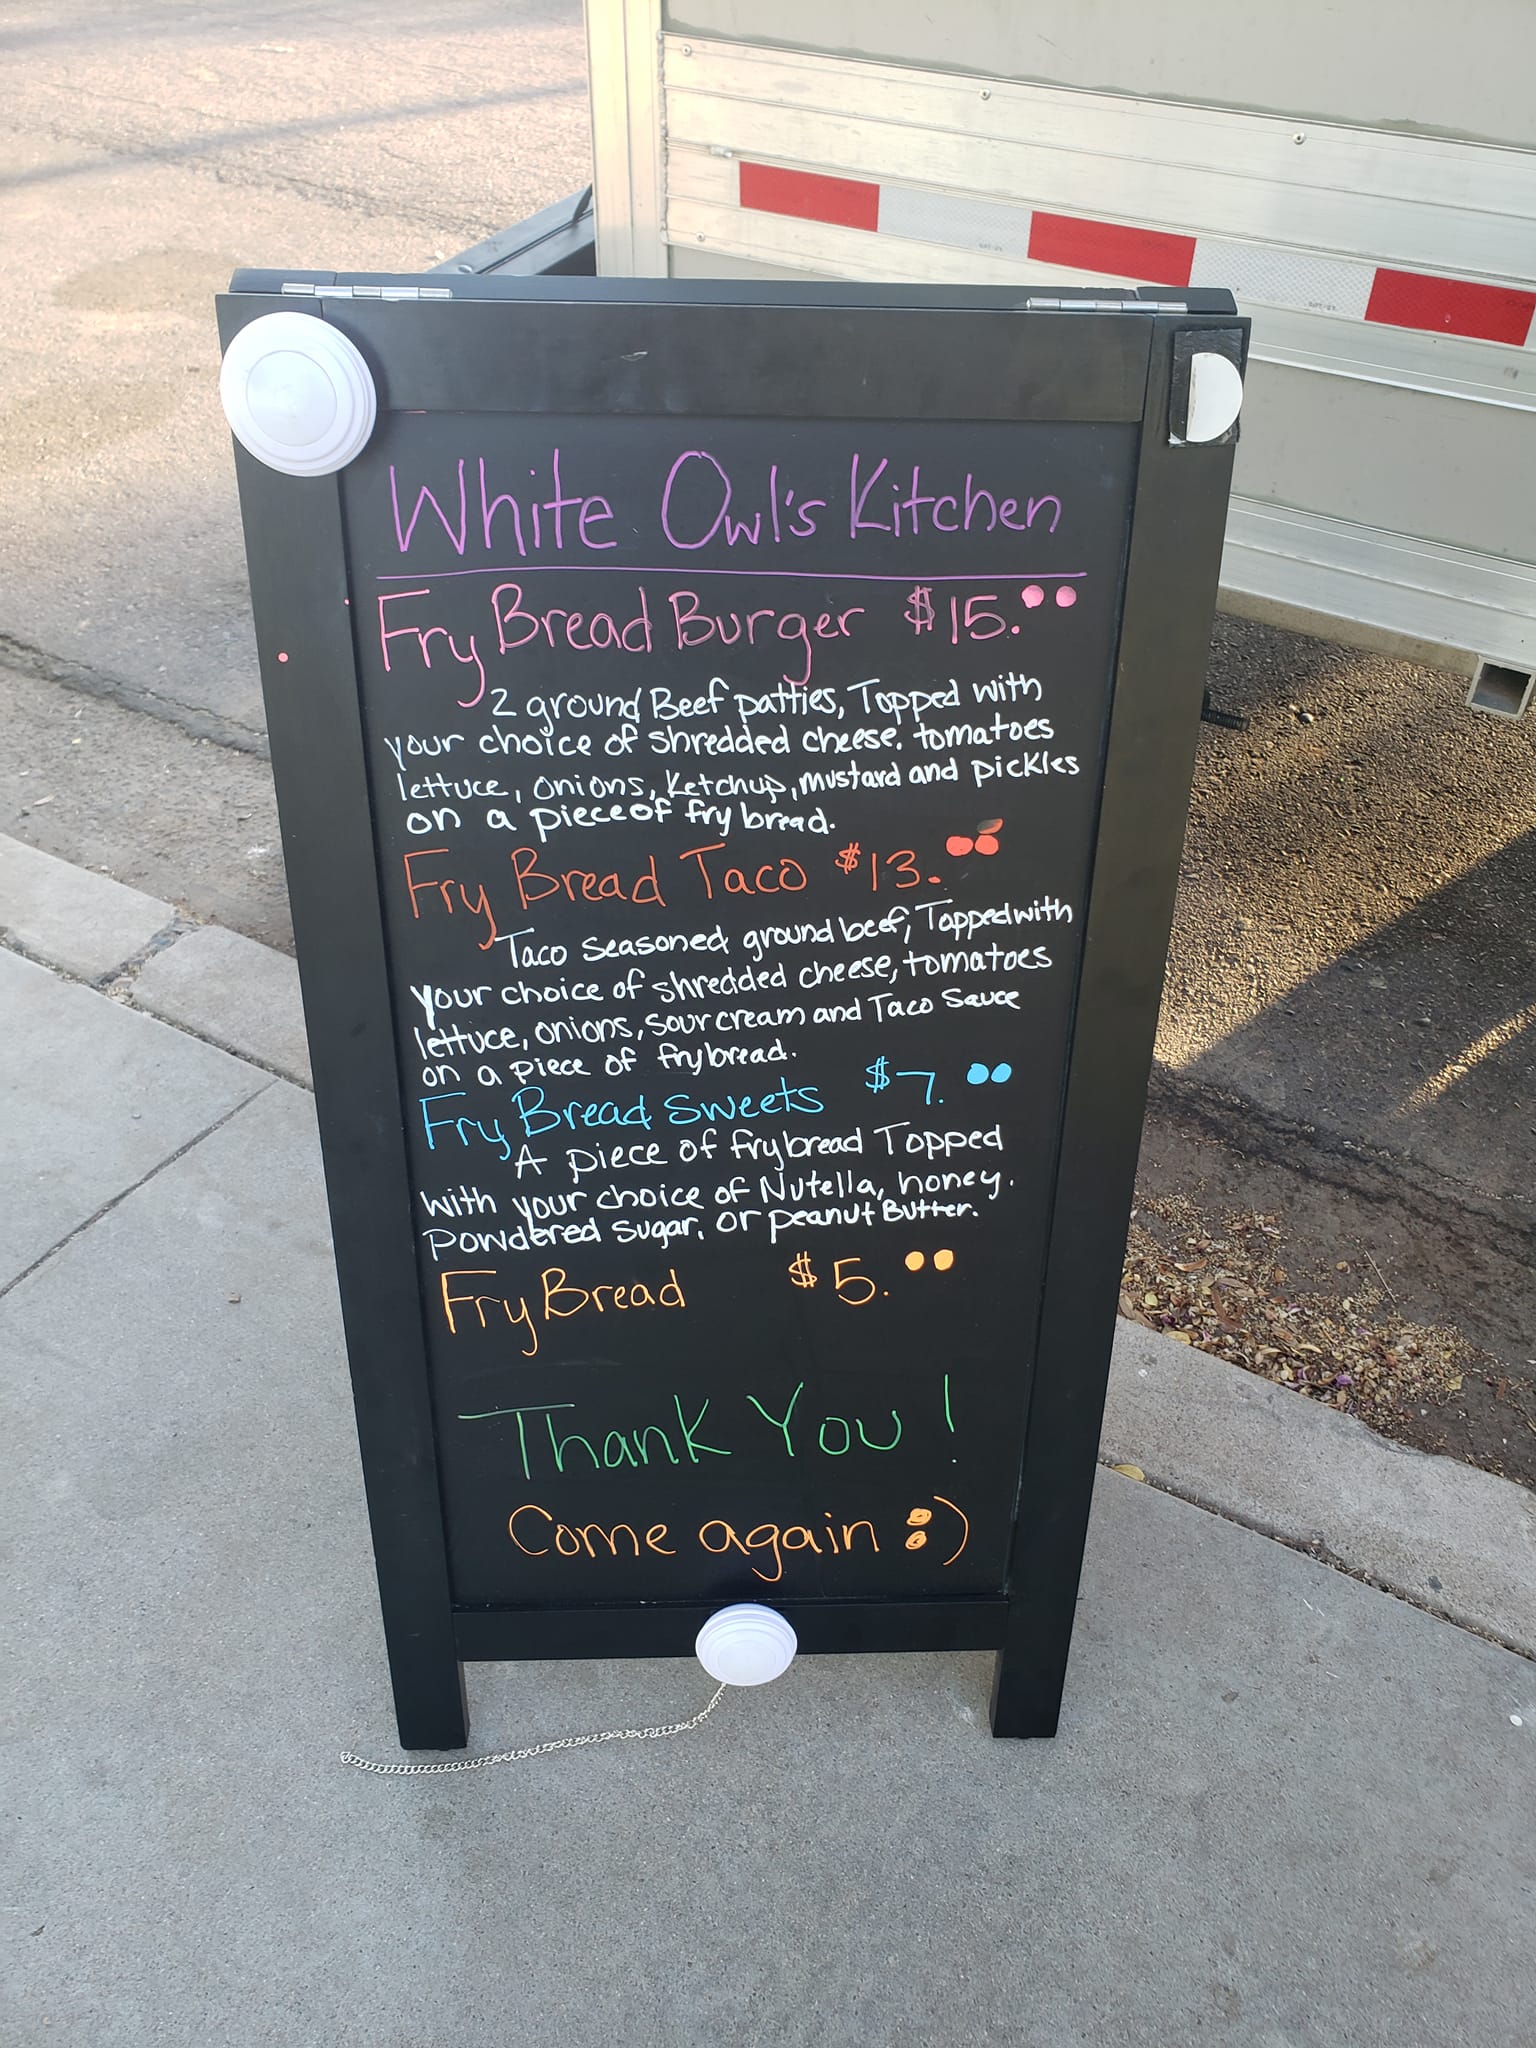 White Owl's Kitchen
Fry Bread Burger $15.••
2 ground Beef patties, Topped with
your choice of shredded cheese. tomatoes
lettuce, onions, Ketchup, mustard and pickles
on a piece of fry bread.
Fry Bread Taco $13.••
Taco seasoned ground beef, Topped with
your choice of shredded cheese, tomatoes
lettuce, onions, sour cream and Taco Sauce
on a piece of frybread.
Fry Bread Sweets $7.••
A piece of frybread Topped
with your choice of Nutella, honey.
Powdered sugar, or peanut Butter.
Fry Bread $5.••
Thank You!
Come again :)